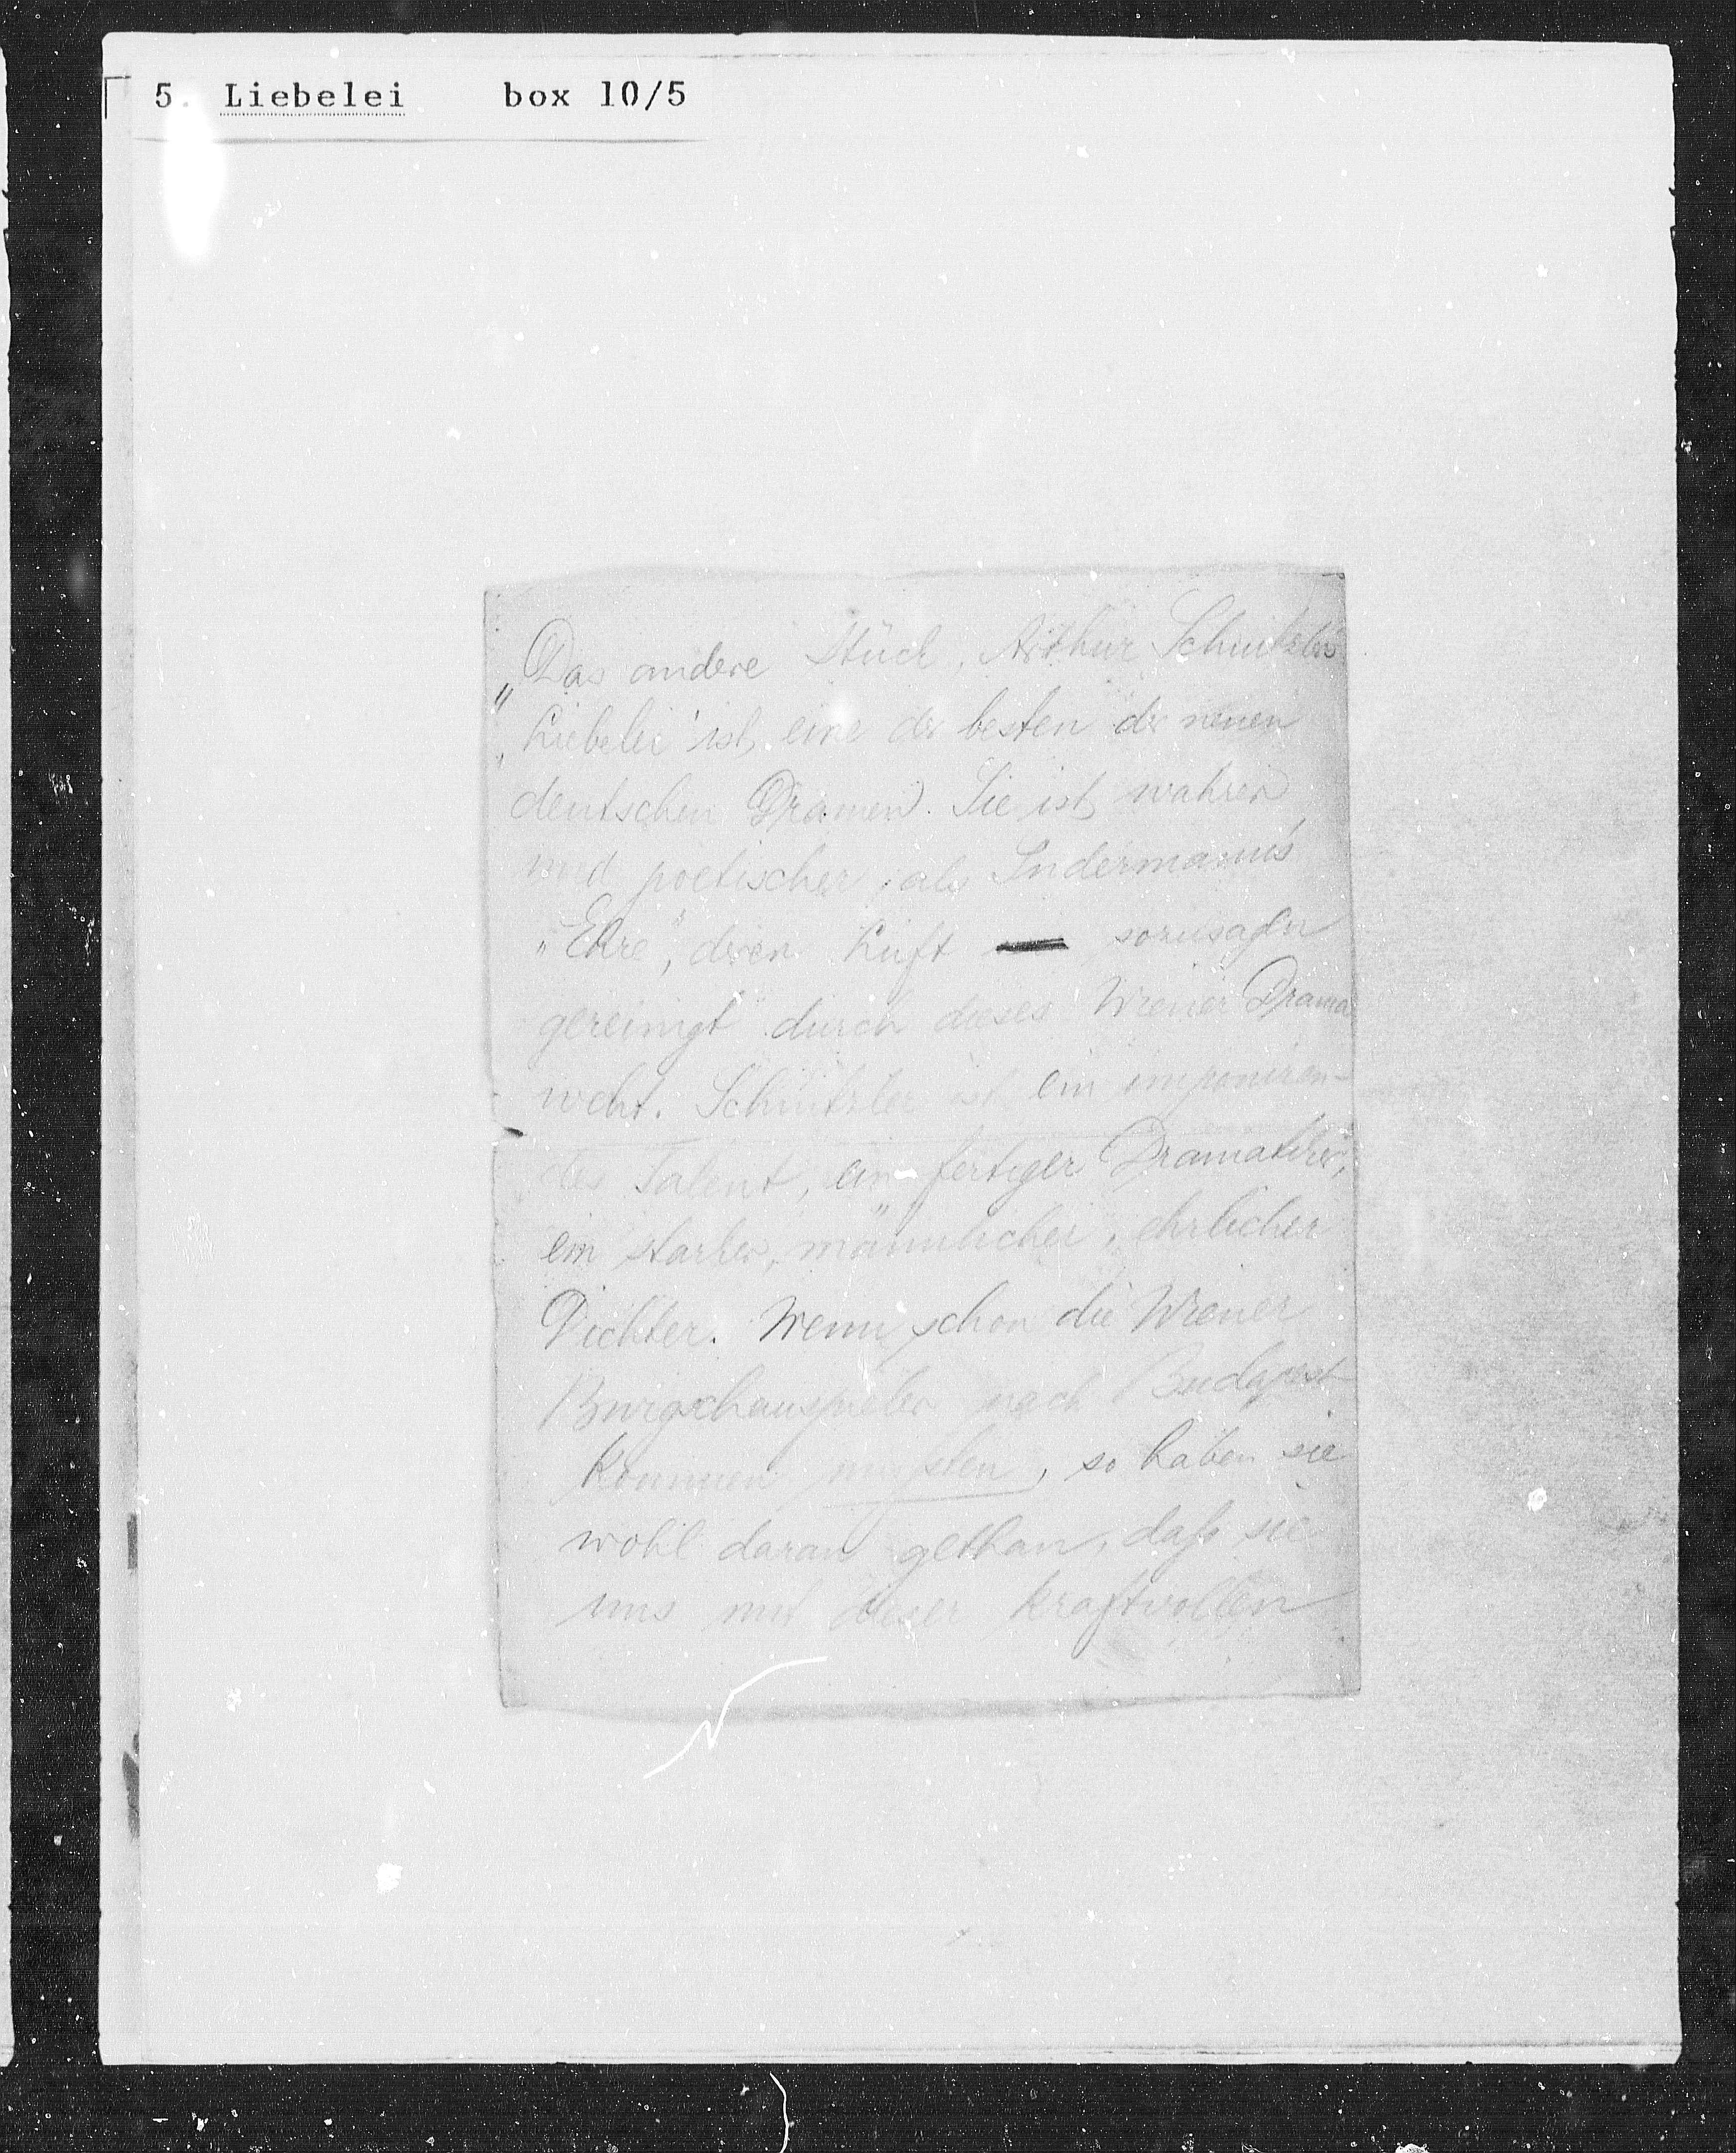 5. Liebelei box 10/5
„Das andere Stück, Arthur Schnitzlers
„Liebelei" ist eine der besten der neuen
deutschen Dramen. Sie ist wahrer
und poetischer als Sudermann's
„Ehre", deren Luft sozusagen
gereinigt durch dieses Wiener Drama
weht. Schnitzler ist ein imponiren-
des Talent, ein fertiger Dramatiker,
ein starker, männlicher, ehrlicher
Dichter. Wenn schon die Wiener
Burgschauspieler nach Budapest
kommen mußten, so haben sie
wohl daran gethan, daß sie
uns mit dieser kraftvollen